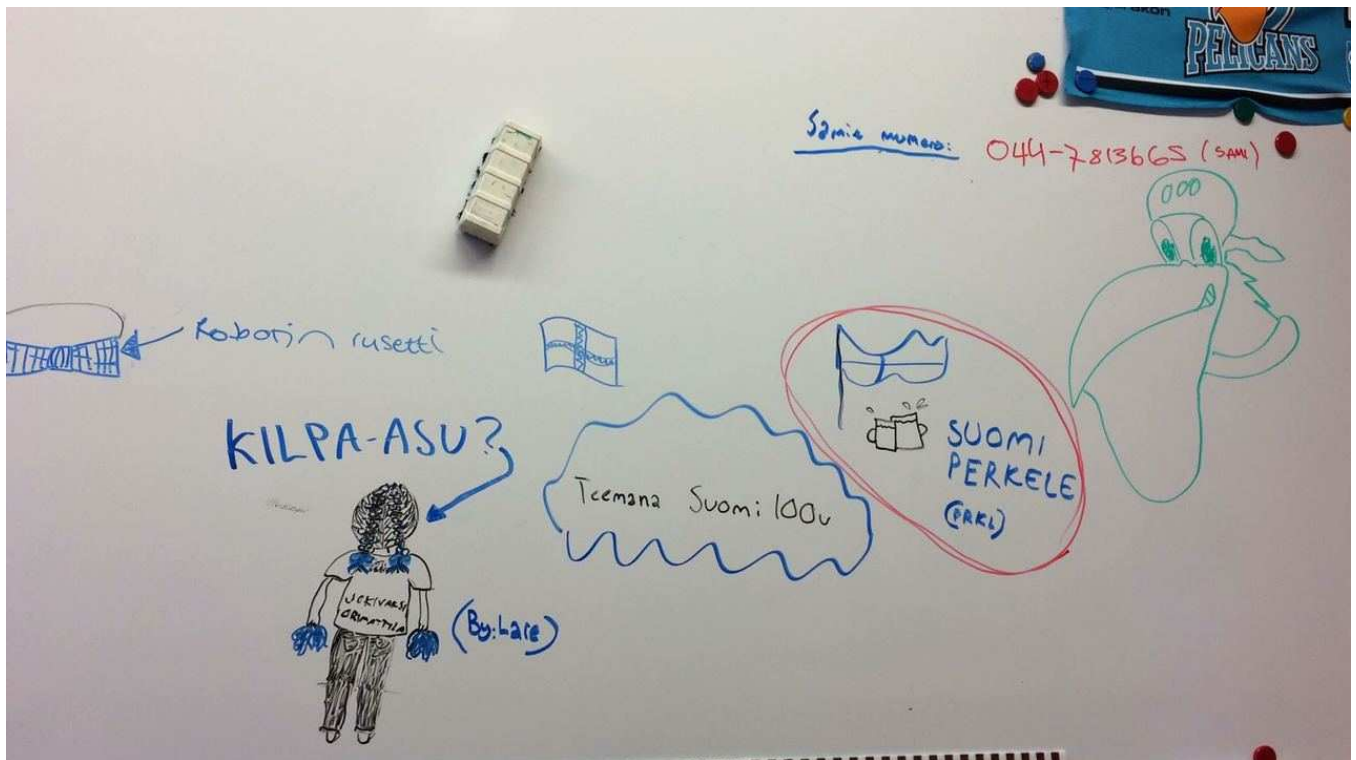 PELICANS
Samin numero: 044-7813665 (SAMI)
Robotin rusetti
KILPA-ASU?
Teemana Suomi 100v
SUOMI
PERKELE
(PRKL)
(By: Lare)